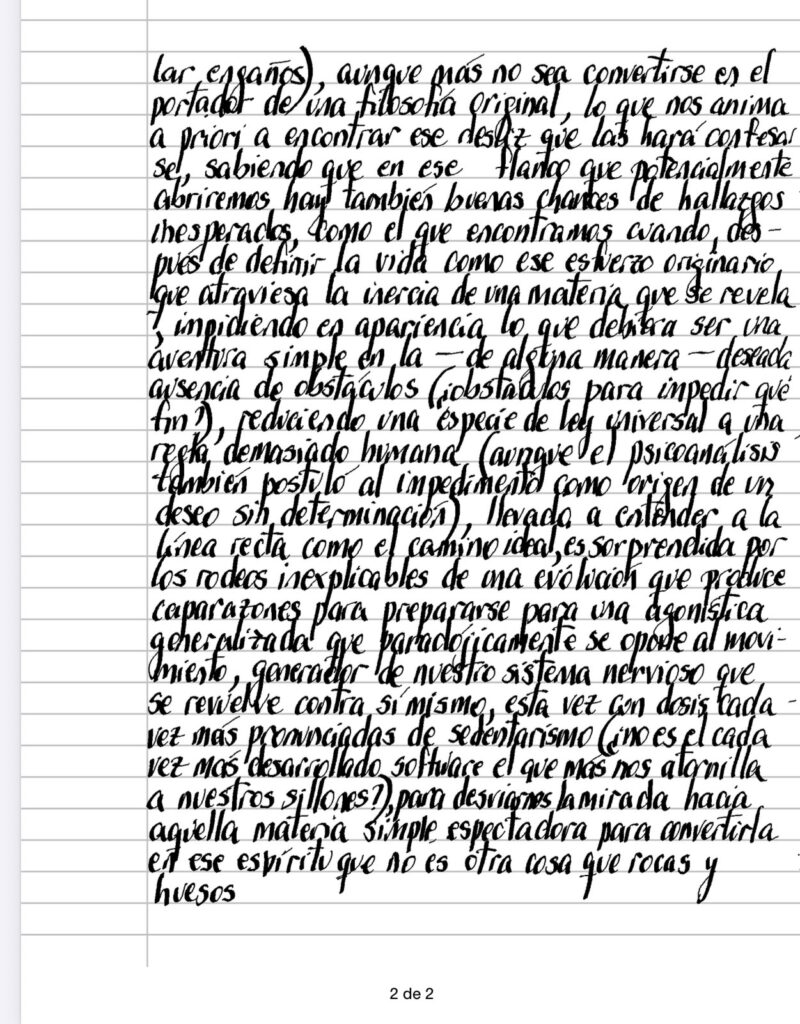 lar engaños), aunque más no sea convertirse en el
portador de una filosofía original, lo que nos anima
a priori a encontrar ese desliz que las hará confesar
se, sabiendo que en ese flanco que potencialmente
abriremos hay también buenas chances de hallazgos
inesperados, como el que encontramos cuando, des-
pués de definir la vida como ese esfuerzo originario
que atraviesa la inercia de una materia que se revela
, impidiendo en apariencia lo que debiera ser una
aventura simple en la — de alguna manera — deseada
ausencia de obstáculos (¿obstáculos para impedir qué
fin?), reduciendo una especie de ley universal a una
regla demasiado humana (aunque el psicoanálisis
también postuló al impedimento como origen de un
deseo sin determinación), llevada a entender a la
línea recta como el camino ideal, es sorprendida por
los rodeos inexplicables de una evolución que produce
caparazones para prepararse para una agonística
generalizada que paradójicamente se opone al movi-
miento, generador de nuestro sistema nervioso que
se revuelve contra sí mismo, esta vez con dosis cada
vez más pronunciadas de sedentarismo (¿no es el cada
vez más desarrollado software el que más nos atornilla
a nuestros sillones?), para desviarnos la mirada hacia
aquella materia simple espectadora para convertirla
en ese espíritu que no es otra cosa que rocas y
huesos
2 de 2